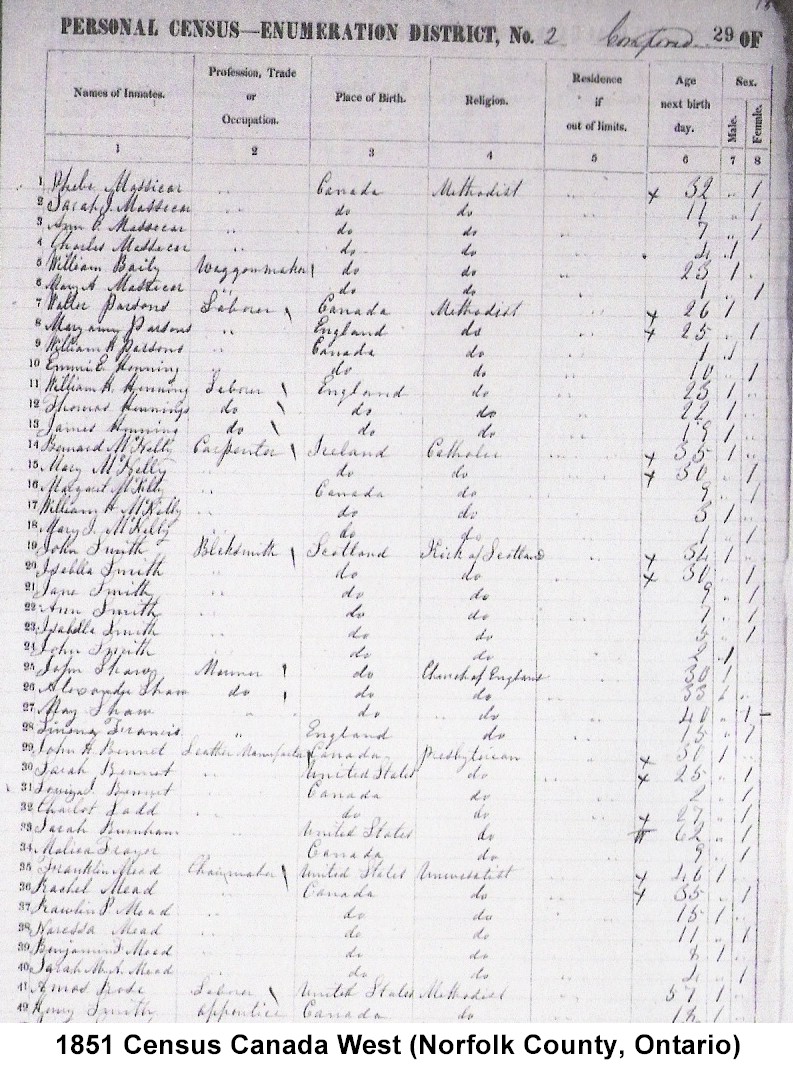 PERSONAL CENSUS—ENUMERATION DISTRICT, No. 2 29 OF
Names of Inmates. Profession, Trade or Occupation. Place of Birth. Religion. Residence if out of limits. Age next birth day. Sex. Male. Female.
1 2 3 4 5 6 7 8
1 Phebe Massecar " Canada Methodist x 32 " 1
2 Sarah J Massecar " do do 11 " 1
3 Ann E. Massecar " do do 7 " 1
4 Charles Massecar " do do 4 1
5 William Baily Waggonmaker do do 23 1 "
6 Mary A Massecar " do do 1 " 1
7 Walter Parsons Laborer Canada Methodist x 26 1
8 Mary amy Parsons " England do x 25 " 1
9 William H Parsons " Canada do 1 1
10 Henning " do do 10 " 1
11 William H. Henning Laborer England do 23 1 "
12 Thomas Hennings do do do 22 1 "
13 James Henning do do do 19 1 "
14 Bernard McKelty Carpenter Ireland Catholic x 35 1 "
15 Mary McKelty " do do x 30 " 1
16 Margaret McKelty " Canada do 9 " 1
17 William H McKelty do do 3 1
18 Mary J. McKelty do do 1 " 1
19 John Smith Blcksmith Scotland Kirk of Scotland x 34 1
20 Isabella Smith " do do x 30 " 1
21 Jane Smith " do do 9 " 1
22 Ann Smith " do do 7 " 1
23 Isabella Smith " do do 5 " 1
24 John Smith " do do 2 1
25 John Shaw do Church of England 30 1
26 Alexander Shaw do do do 33 1 "
27 May Shaw " do do 40 " 1
28 Francis " England do 15 " 1
29 John H Bennet Leather Canada Presbyterian x 30 1 "
30 Sarah Bennet " United States do x 25 " 1
31 Bennet " Canada do 2 " 1
32 Charlot Ladd " do do x 27 " 1
33 Sarah Burnham " United States do 62 " 1
34 " Canada do 9 " 1
35 Franklin Mead Chairmaker United States x 46 1
36 Rachel Mead " Canada do x 35 " 1
37 P. Mead " do do 15 1 "
38 Mead " do do 11 " 1
39 Benjamin F Mead " do do 8 1 "
40 Sarah M. A. Mead do do 4 " 1
41 Amos Rose Laborer United States Methodist 57 1 "
42 Henry Smith apprentice Canada do 18 1 "
1851 Census Canada West (Norfolk County, Ontario)